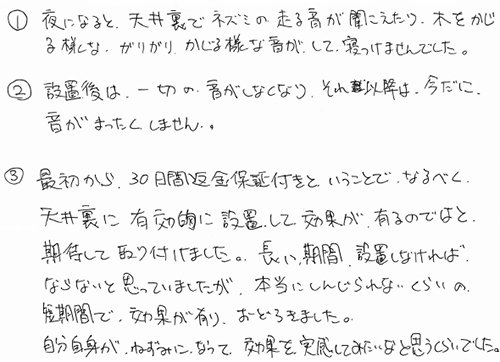 ① 夜になると、天井裏でネズミの走る音が聞こえたり、木をかじ
る様な、ガリガリ、かじる様な音が、して、寝つけませんでした。
② 設置後は、一切の、音がしなくなり、それ以降は、今だに、
音がまったくしません。。
③ 最初から、30日間返金保証付きと、いうことで、なるべく、
天井裏に有効的に設置して効果が、有るのではと、
期待して取り付けました。長い、期間、設置しなければ、
ならないと思っていましたが、本当にしんじられないくらいの、
短期間で、効果が有り、おどろきました。
自分自身が、ねずみに、なって、効果を実感してみたいなと思うくらいでした。